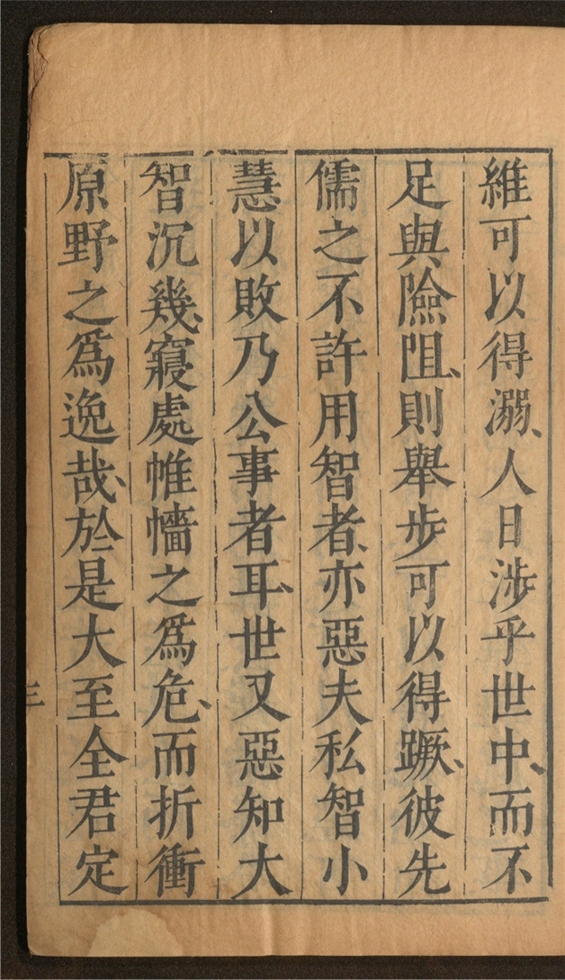 維可以得溺、人日涉乎世中、而不
足與險阻、則舉步可以得蹶、彼先
儒之不許用智者、亦惡夫私智小
慧以敗乃公事者耳、世又惡知大
智沉幾、寢處帷幬之爲危、而折衝
原野之爲逸哉、於是大至全君定
三